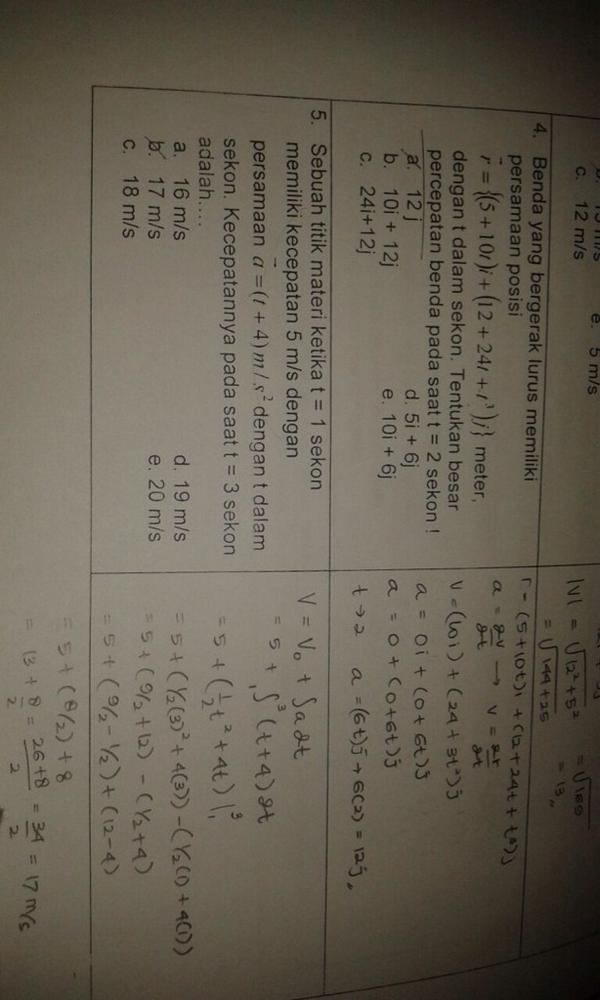 c. 12 m/s
e. 5 m/s
|V| = √12² + 5² = √169
= √144+25 = 13 "
4. Benda yang bergerak lurus memiliki
persamaan posisi
r = {(5 + 10t)i + (12 + 24t + t³)j} meter,
dengan t dalam sekon. Tentukan besar
percepatan benda pada saat t = 2 sekon !
a. 12 j
d. 5i + 6j
b. 10i + 12j
e. 10i + 6j
c. 24i+12j
r = (5+10t)i + (12+24t + t³)j
a = dv/dt → v = dr/dt
V = (10i) + (24 + 3t²)j
a = 0i + (0 + 6t)j
a = 0 + (0+6t)j
t → 2 a = (6t)j → 6(2) = 12j "
5. Sebuah titik materi ketika t = 1 sekon
memiliki kecepatan 5 m/s dengan
persamaan a = (t + 4) m/s² dengan t dalam
sekon. Kecepatannya pada saat t = 3 sekon
adalah....
a. 16 m/s
d. 19 m/s
b. 17 m/s
e. 20 m/s
c. 18 m/s
V = V₀ + ∫a dt
= 5 + ₁∫³ (t+4) dt
= 5 + (½t² + 4t) |³₁
= 5 + (½(3)² + 4(3)) - (½(1) + 4(1))
= 5 + (9/2 + 12) - (½ + 4)
= 5 + (9/2 - ½) + (12 - 4)
= 5 + (8/2) + 8
= 13 + 8/2 = 26+8/2 = 34/2 = 17 m/s